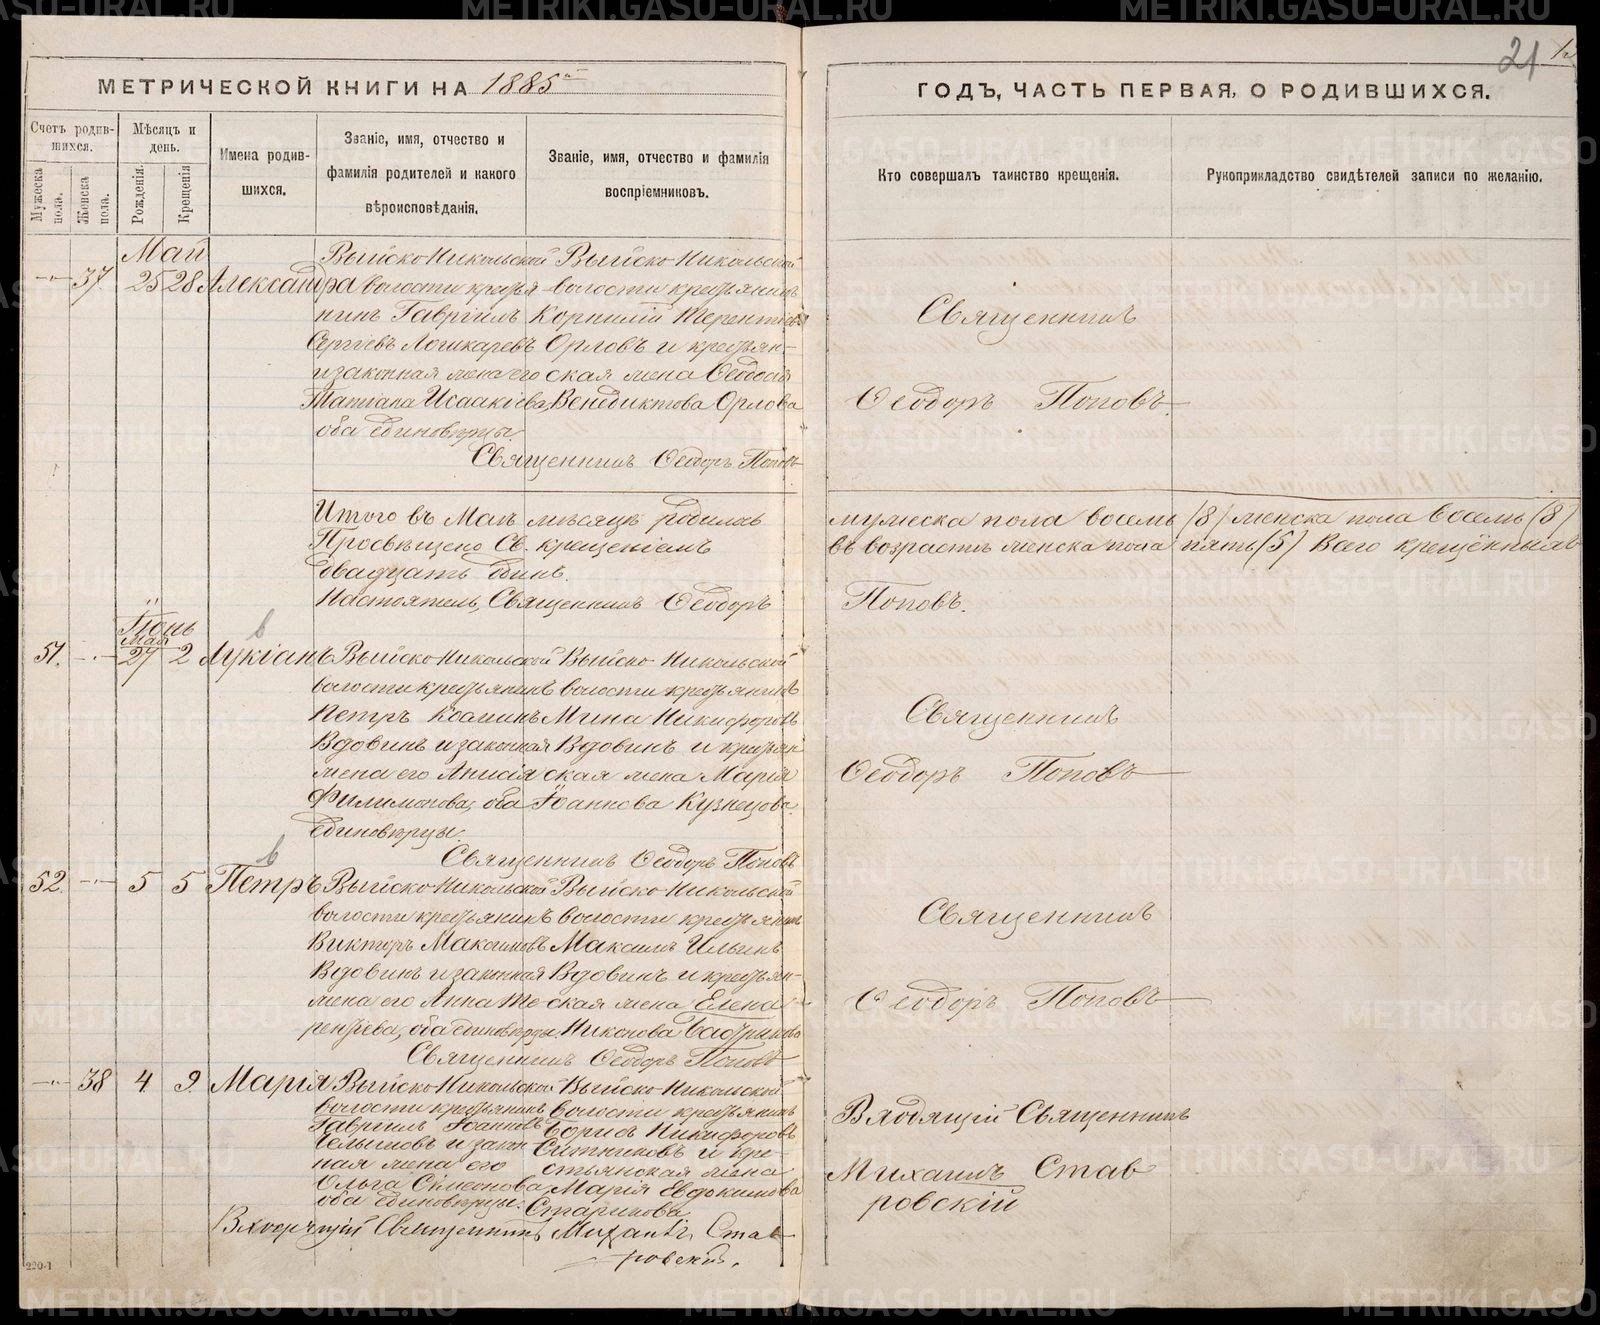 21
МЕТРИЧЕСКОЙ КНИГИ НА 1885й
ГОДЪ, ЧАСТЬ ПЕРВАЯ, О РОДИВШИХСЯ.
Счетъ родив-
шихся.
Мужеска
пола.
Женска
пола.
Мѣсяцъ и
день.
Рожденія.
Крещенія
Имена родив-
шихся.
Званіе, имя, отчество и
фамилія родителей и какого
вѣроисповѣданія.
Званіе, имя, отчество и фамилія
воспріемниковъ.
Кто совершалъ таинство крещенія.
Рукоприкладство свидѣтелей записи по желанію.
Май
37 25 28 Александра
Выйско-Никольской
волости кресть-
нинъ Гавріилъ
Сергіевъ Лошкаревъ
и законная жена его
Татіана Исаакіева,
оба единовѣрцы.
Выйско-Никольской
волости крестьянинъ
Корнилій Терентіевъ
Орловъ и крестьян-
ская жена Ѳеодосія
Венедиктова Орлова
Священникъ Ѳеодоръ Поповъ
Священникъ
Ѳеодоръ Поповъ.
Итого въ Маѣ мѣсяцѣ родилось мужеска пола восемь (8) женска пола восемь (8)
Просвѣщено Св. крещеніемъ въ возрастѣ женска пола пять (5) Всего крещенныхъ
двадцать одинъ.
Настоятель, Священникъ Ѳеодоръ Поповъ.
Іюнь
Май
51. 27 2 Лукіанъ
Выйско-Никольской
волости крестьянинъ
Петръ Козминъ
Вдовинъ и законная
жена его Анисія
Филимонова, оба
единовѣрцы.
Выйско-Никольской
волости крестьянинъ
Мина Никифоровъ
Вдовинъ и крестьян
ская жена Марія
Іоаннова Кузнецова.
Священникъ Ѳеодоръ Поповъ
Священникъ
Ѳеодоръ Поповъ
52. 5 5 Петръ
Выйско-Никольской
волости крестьянинъ
Викторъ Максимовъ
Вдовинъ и законная
жена его Анна Те-
рентіева, оба единовѣрцы.
Выйско-Никольской
волости крестьянинъ
Максимъ Ильинъ
Вдовинъ и крестьян-
ская жена Елена
Никонова
Священникъ Ѳеодоръ Поповъ
Священникъ
Ѳеодоръ Поповъ
38 4 9. Марія
Выйско-Никольской
волости крестьянинъ
Гавріилъ Іоанновъ
и закон-
ная жена его
Ольга Симеонова
оба единовѣрцы.
Выйско-Никольской
волости крестьянинъ
Борисъ Никифоровъ
Ситниковъ и кре-
стьянская жена
Марія Евдокимова
Старикова
Входящій Священникъ Михаилъ Став-
ровскій.
Входящій Священникъ
Михаилъ Став
ровскій
220-1
METRIKI.GASO-URAL.RU